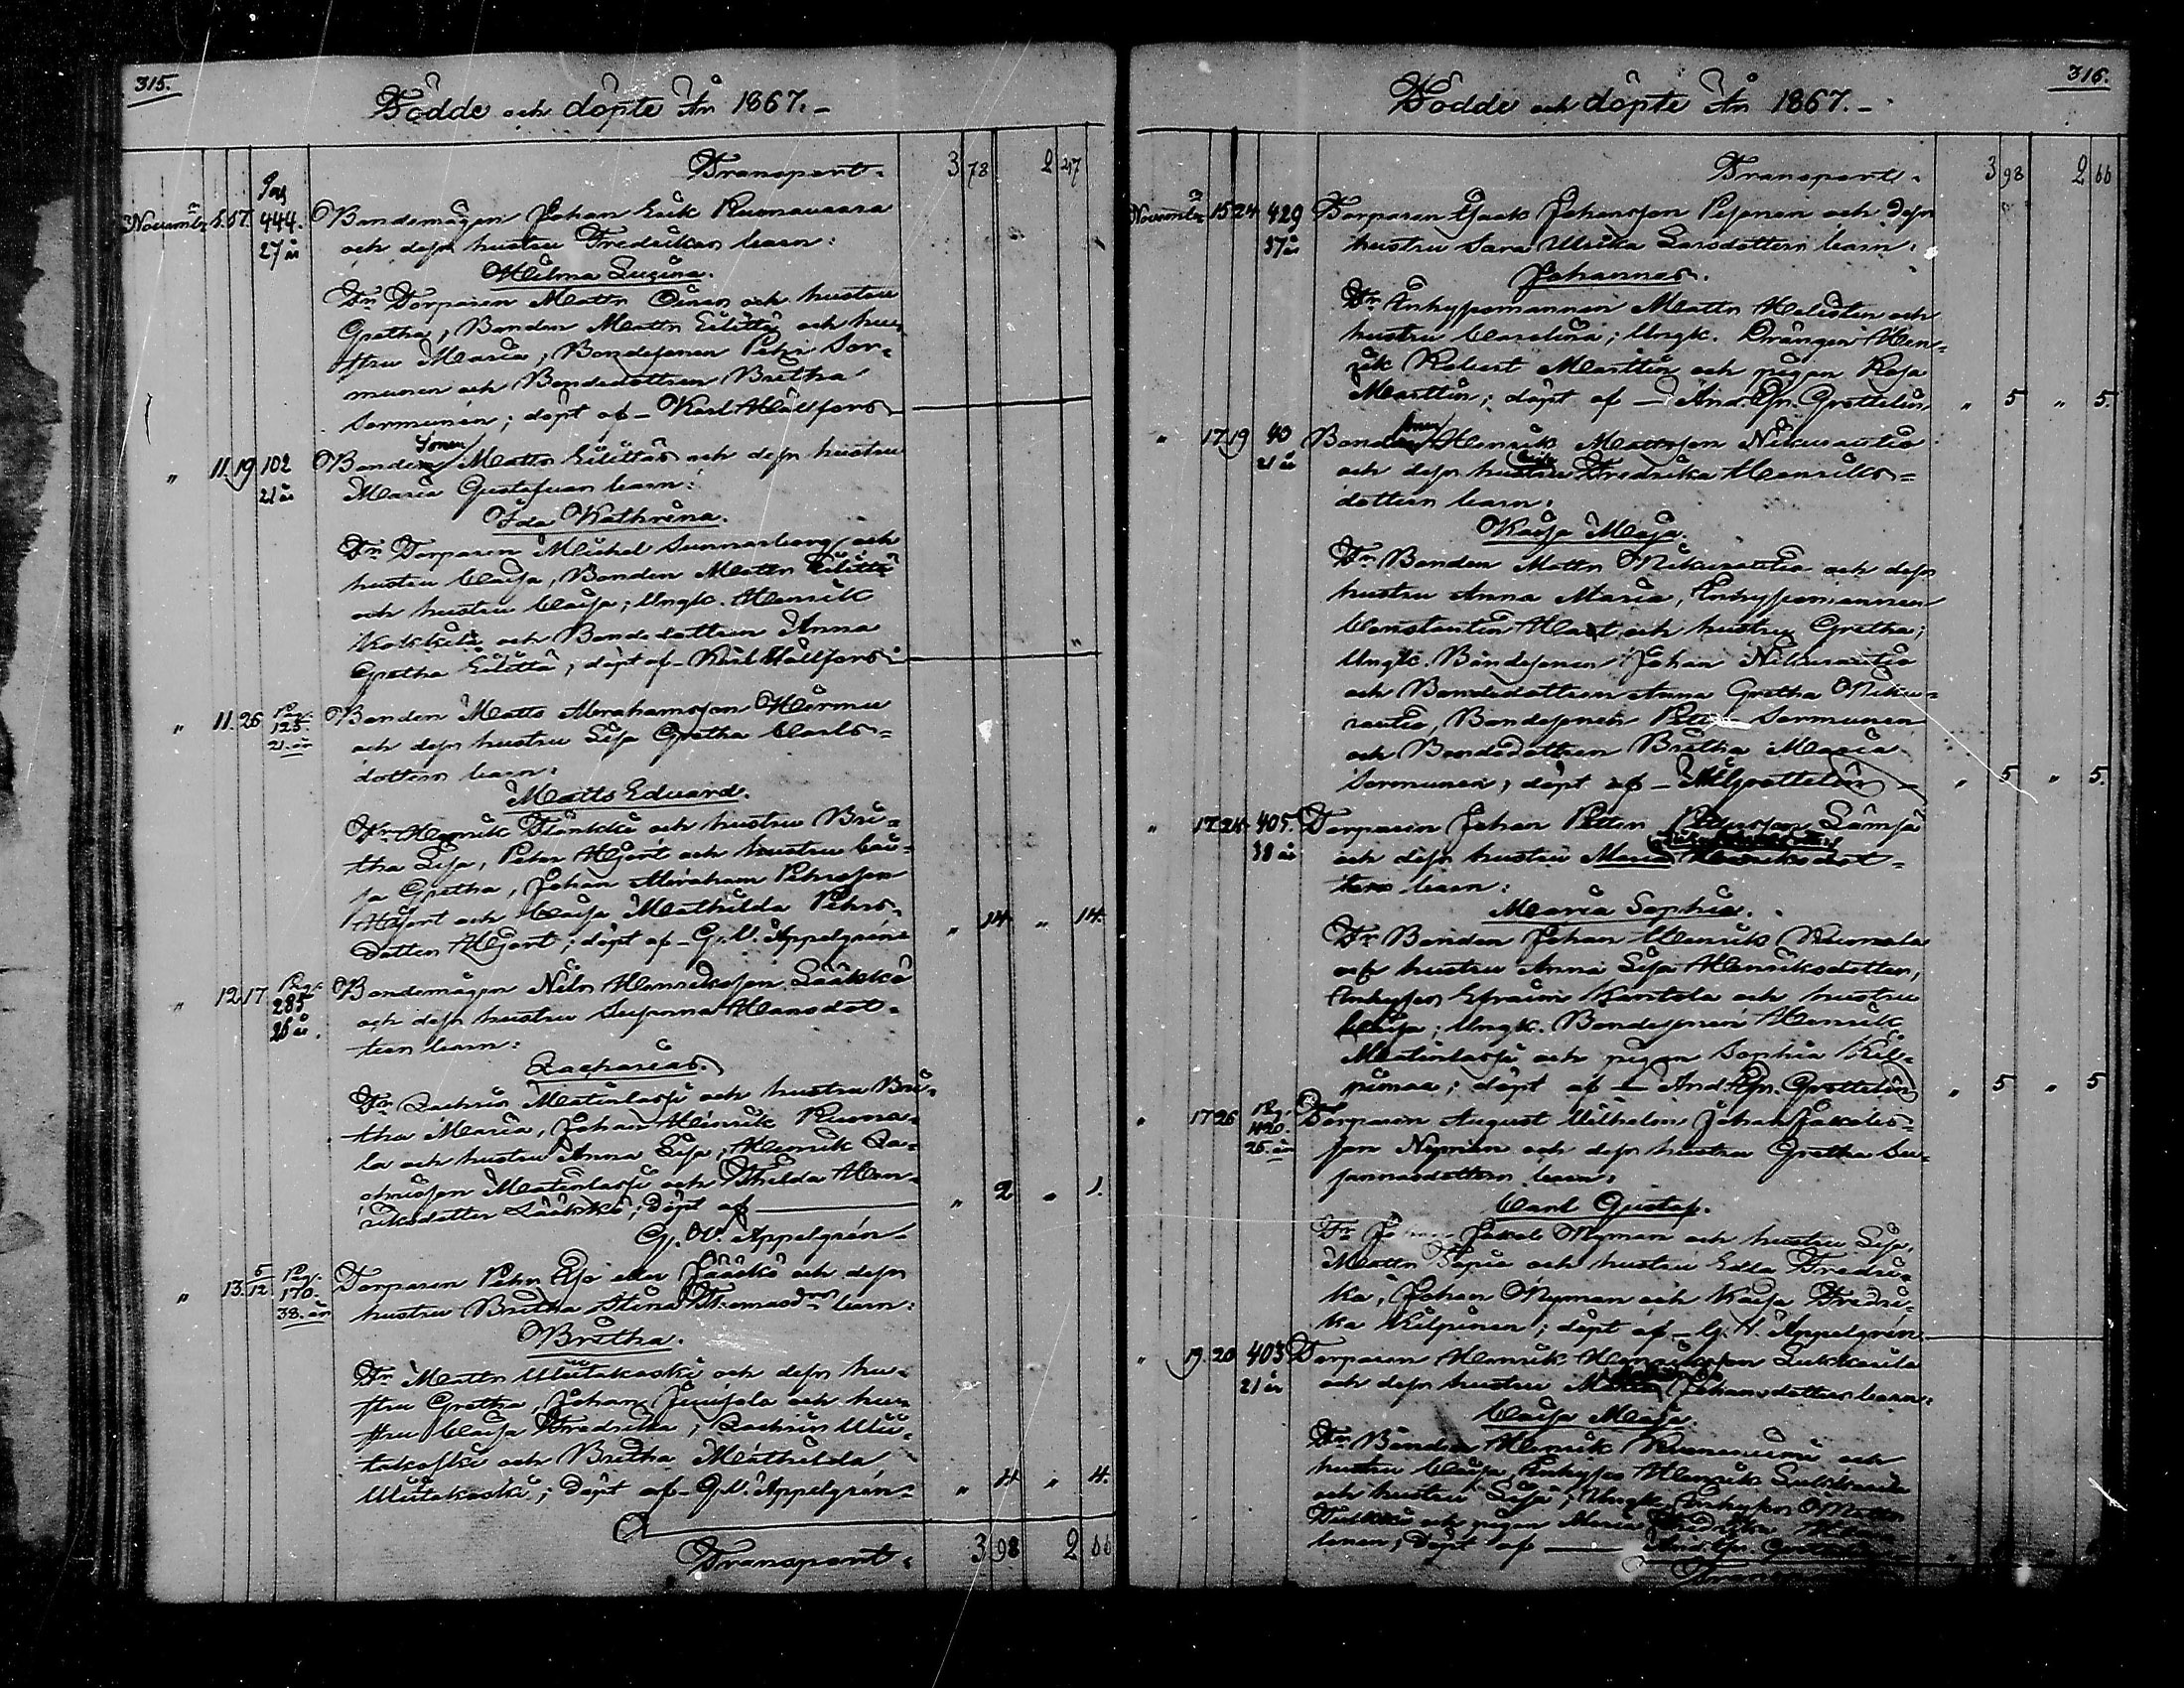 315.
Födde och döpte År 1867.-
Transport. 3 73 2 47
November 5. 17. Pag 444. Bondemågen Johan Erik Ruonavaara
27 år och dess hustru Fredrikas barn:
Hilma Lusina.
Fr. Torparen Matts Oinas och hustru
Gretha, Bonden Matts Eilittä och hu-
stru Maria, Bondesonen Petr Sor-
munen och Bondedottren Bretha
Sormunen; döpt af - Karl Hällfors
" 11. 19 102 Bondesonen Matts Eilittäs och dess hustru
21 år Maria Gustafvas barn:
Ida Kathrina.
Fr. Torparen Michel Sunnarborg och
hustru Caisa, Bonden Matts Eilittä
och hustru Caisa; Ungk. Henrik
och Bondedottren Anna
Gretha Eilittä; döpt af - Karl Hällfors.
" 11. 26 Pag. 125. Bonden Matts Abrahamsson Härmä
21. år och dess hustru Lisa Gretha Carls-
dotters barn:
Matts Eduard.
Fr. Henrik och hustru Bri-
tha Lisa, Petr Hjört och hustru Cai-
sa Gretha, Johan Abraham Petrsson
Hjort och Caisa Mathilda Petrs-
dotter Hjort; döpt af - G. V. Appelgrén. " 14. " 14.
" 12. 17 Pag. 285 Bondemågen Nils Henriksson Lääkkö
26 år. och dess hustru Susanna Hansdot-
ters barn:
Zacharias.
Fr. Zachris Matinlassi och hustru Bri-
tha Maria, Johan Henrik Ruona-
la och hustru Anna Lisa, Henrik Za-
chrisson Matinlassi och Thilda Hen-
riksdotter Lääkkö; döpt af " 2 " 1.
G. V. Appelgrén.
" 13. 5/12. Pag. 170. Torparen Petr Ojo eller Jääskö och dess
38. år hustru Bretha Stina Thomasdrs barn:
Bretha.
Fr. Matts Uutakoski och dess hu-
stru Gretha, Johan Junjola och hu-
stru Caisa Fredrika, Zachris Uu-
takoski och Bretha Mathilda
Uutakoski; döpt af - G. V. Appelgrén. " 4 " 4.
Transport. 3 98 2 66
316.
Födde och döpte År 1867.-
Transport. 3 98 2 66
November 15 24 429 Torparen Isaak Johansson Pesonen och dess
37 år hustru Sara Ulrika Larsdotters barn:
Johannes.
Fr. Inhysesmannen Matts Helistén och
hustru Carolina; Ungk. Drängen Hen-
rik Robert Marttin och pigan Kaja
Marttin; döpt af And. Efr. Grottelin " 5 " 5.
" 17 19 40 Bondesonen Henrik Mattsson Niku­rautio
21 år och dess hustru Fredrika Henriks-
dotters barn:
Kaisa Maja.
Fr. Bonden Matts Nikurautio och dess
hustru Anna Maria, Inhysesmannen
Constantin och hustru Gretha;
Ungk. Bondesonen Johan Nikurautio
och Bondedottren Anna Gretha Niku-
rautio, Bondesonen Petter Sormunen
och Bondedottren Bretha Maria
Sormunen; döpt af - AEGrottelin - " 5 " 5.
" 17. 24 405. Torparen Johan Petter Petersson Lämsä
38 år och dess hustru Maria Henriksdot-
ters barn:
Maria Sophia.
Fr. Bonden Johan Henrik Ruonala
och hustru Anna Lisa Henriksdotter,
Inhyses Efraim Kantola och hustru
Caisa; Ungk. Bondesonen Henrik
Matinlassi och pigan Sophia Kil-
pimaa; döpt af - And. Efr. Grottelin " 5 " 5
" 17 26 Pag. Torparen August Wilhelm Johan Jakobs-
26. år son Nyman och dess hustru Gretha Su-
sannasdotters barn:
Carl Gustaf.
Fr. Johan Jakob Nyman och hustru Lisa,
Matts Tapio och hustru Edla Fredri-
ka, Johan Nyman och Kaisa Fredri-
ka Kilpinen; döpt af - G. V. Appelgrén.
" 19. 20 403 Torparen Henrik Henriksson Lukkarila
21 år och dess hustru Maria Johansdotters barn:
Caisa Maja.
Fr. Bonden Henrik och
hustru Caisa, Inhyses Henrik
och hustru Lisa; Ungk. Inhyses Matts
och pigan Maria Fredrika
; döpt af